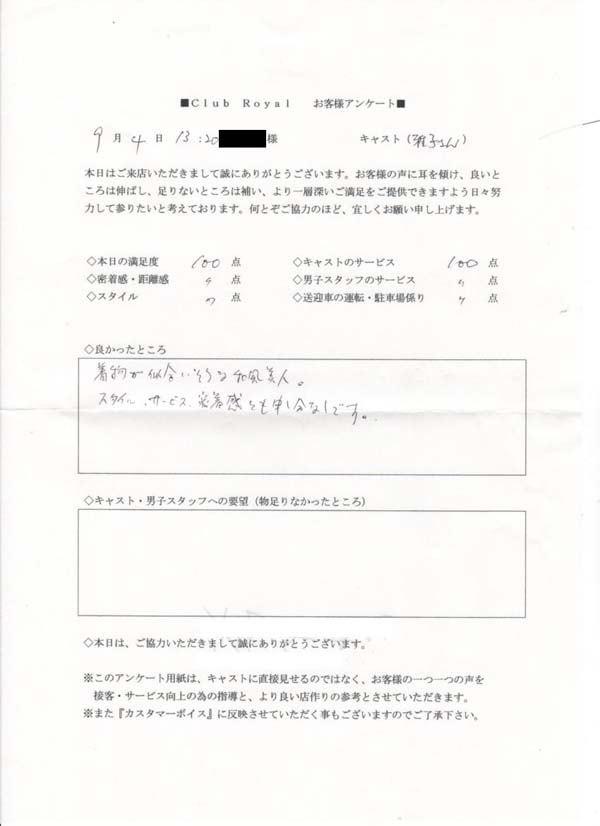 ■Club Royal お客様アンケート■
9月4日 13:20 様 キャスト(雅子さん)
本日はご来店いただきまして誠にありがとうございます。お客様の声に耳を傾け、良いと
ころは伸ばし、足りないところは補い、より一層深いご満足をご提供できますよう日々努
力して参りたいと考えております。何とぞご協力のほど、宜しくお願い申し上げます。
◇本日の満足度 100 点 ◇キャストのサービス 100 点
◇密着感・距離感 〃 点 ◇男子スタッフのサービス 〃 点
◇スタイル 〃 点 ◇送迎車の運転・駐車場係り 〃 点
◇良かったところ
着物が似合いそうな和風美人。
スタイル、サービス、密着感とも申し分なしです。
◇キャスト・男子スタッフへの要望(物足りなかったところ)
◇本日は、ご協力いただきまして誠にありがとうございます。
※このアンケート用紙は、キャストに直接見せるのではなく、お客様の一つ一つの声を
接客・サービス向上の為の指導と、より良い店作りの参考とさせていただきます。
※また『カスタマーボイス』に反映させていただく事もございますのでご了承下さい。